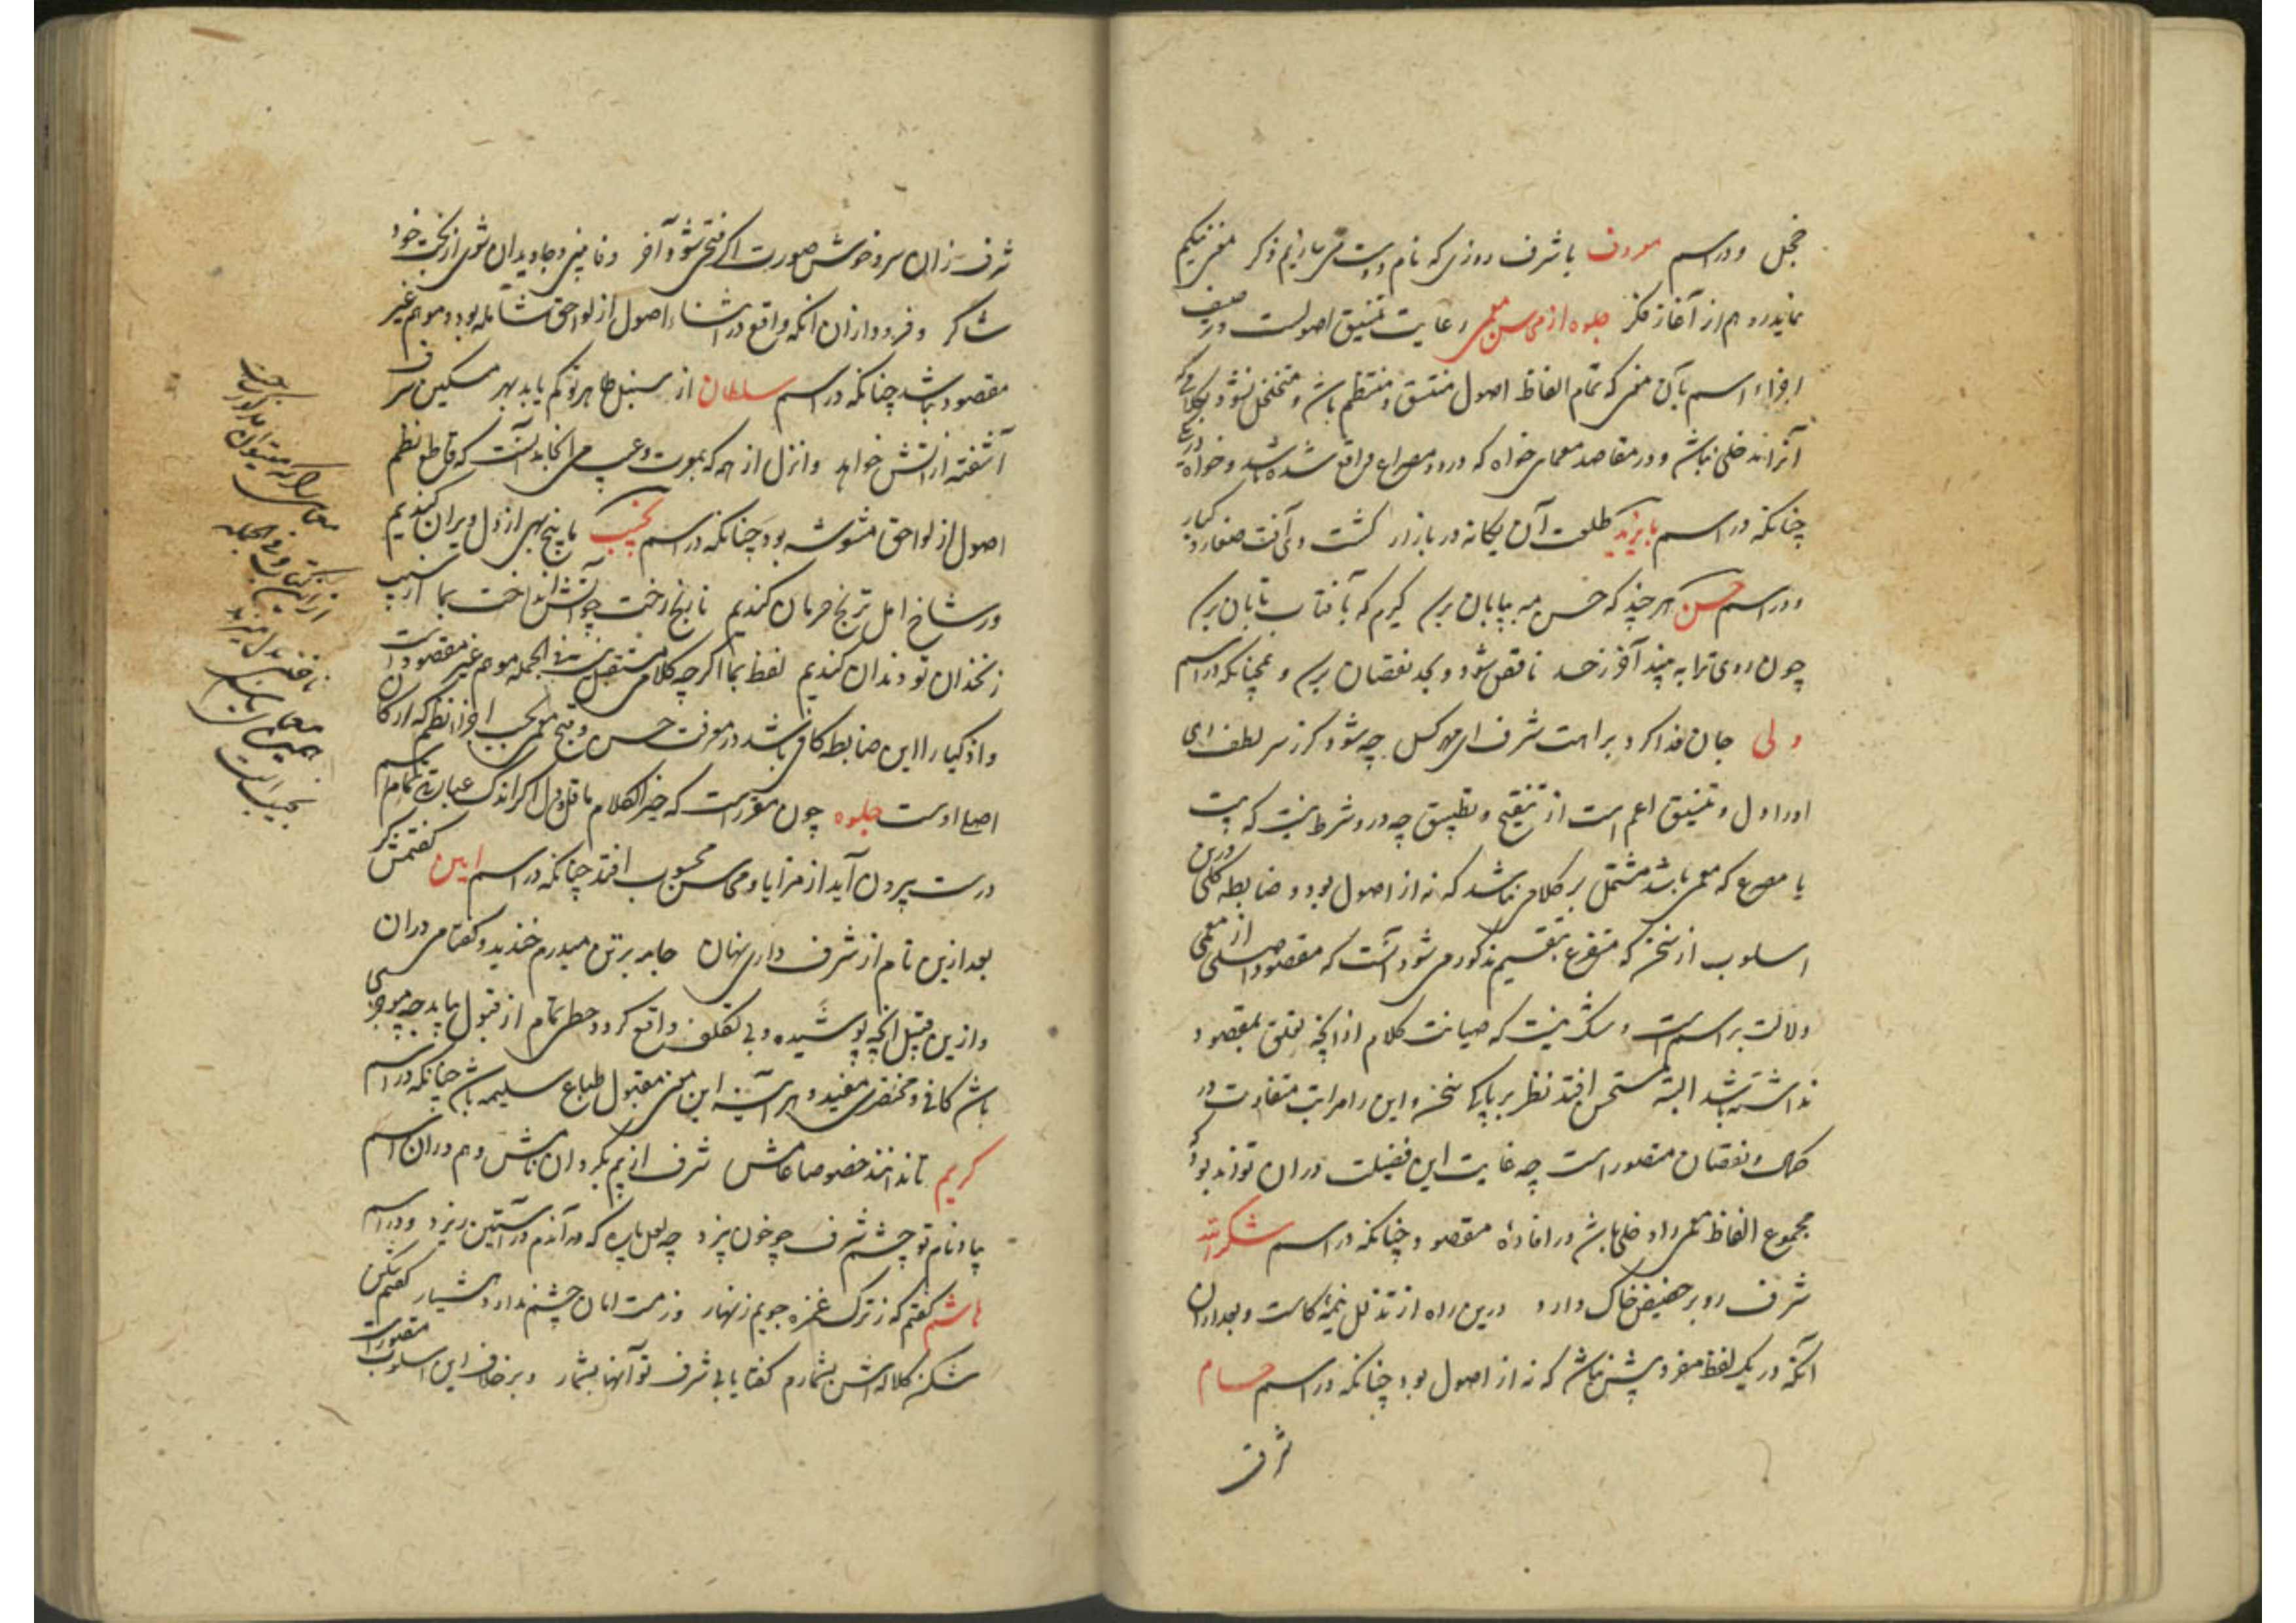 خجل و در اسم معروف با شرف روزی که نام دوست می رانیم ذکر
نماید و هم از آغاز فکر جلوه از محاسن معمی رعایت تنسیق اصولست و
اجزاء اسم بآن معنی که تمام الفاظ اصول متسق و منتظم باشد و متخلخل نشود بکلامی که
آنرا مدخلی نباشد و در مقاصد معمای خواه که در دو مصراع واقع شده باشد و خواه
چنانکه در اسم بایزید طلعت آن یکانه در بازار کشت وی آفت صغار و کبار
و در اسم حسن هر چند که حسن مه بپایان برسد کیرم که بآفتاب تابان برسد
چون روی ترا به بیند آخر ز حسد ناقص شود و بحد نقصان برسد و همچنانکه در اسم
ولی جان فدا کرد براهت شرف ای مهر کسل چه شود کر ز سر لطف دهی
اورا دل و تنسیق اعم است از تنقیح و تطبیق چه در و شرط نیست که بیت
یا مصرع که معمی باشد مشتمل بر کلامی نباشد که نه از اصول بود و ضابطه کلی درین
اسلوب از سخن که متفرع بتقسیم مذکور می شود آنست که مقصود اصلی از معمی
دلالت بر اسم است و شک نیست که صیانت کلام از آنچه تعلق بمقصود
نداشته باشد البته مستحسن افتد نظر بر پاکی سخن و این را مراتب متفاوت در
کمال و نقصان متصور است چه غایت این فضیلت در ان تواند بود که
مجموع الفاظ معمی را دخلی باشد در افادهٔ مقصود چنانکه در اسم شکرالله
شرف رو بر حضیض خاک دارد درین راه از تذلل نیمهٔ کاست و بعد از ان
آنکه در یک لفظ مفرد بیش نباشد که نه از اصول بود چنانکه در اسم حسام
شرف
شرف زان سرو خوش صورت اکر فتحی شود آخر و فا بینی و جاویدان شوی از بخت خود
شاکر و فروداز ان آنکه واقع در اثناء اصول از لواحق شامله بود و موهم غیر
مقصود نباشد چنانکه در اسم سلطان از سنبل طاهر تو کم یابد بهر مسکین شرف
آشفته از انش خواهد و انزل از همه که بصورت وعیب می انجامد آنست که قاطع نظم
اصول از لواحق مشوشه بود چنانکه در اسم نجیب ما بیخ بهی از دل ویران کندیم
ور شاخ امل ترنج حرمان کندیم تا بنج رخت چو آتش انداخت بما از سیب
زنخدان تو دندان کندیم لفظ بما اکرچه کلام مستقل نیست فی الجمله موهم غیر مقصود است
و اذکیا را این ضابطه کافی باشد در معرفت حسن و قبح معمی بحسب اجزا نظم که ارکان
اصلی اوست جلوه چون مقرر است که خیر الکلام ما قل و دل اکر از اندک عبارتی تمام اسم
درست بیرون آید از مزایا و محاسن محسوب افتد چنانکه در اسم امین کفتمش کر
بعد ازین نام از شرف داری نهان جامه بر تن میدرم خندید و کفتا می دران
و ازین قبیل آنچه پوشیده و بی تکلف واقع کردد حظی تمام از قبول یابد
باشد کافی و مختصری مفید و هر آینه این معنی مقبول طباع سلیمه باشد چنانکه در اسم
کریم تا ندانند خصوصا عامش شرف از بیم بکرداند نامش و هم در ان اسم
بیاد نام تو چشم شرف چو خون بیزد چه لعل پاره که هر آن دم در آستین ریزد و در اسم
هاشم کفتم که ز ترک غمزه جویم زنهار وز مست امان چشم ندارد هشیار کفتم شکن
شکن کلاله اش بشمارم کفتا یابی شرف تو آنها بشمار و بر خلاف این اسلوب متصور است
معمای را که
ازین کتاب و فی الجمله
نجیب است